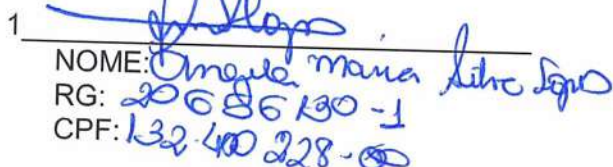 1
NOME: Angela Maria Silva Lopes
RG: 20686130-1
CPF: 132.400.228-00